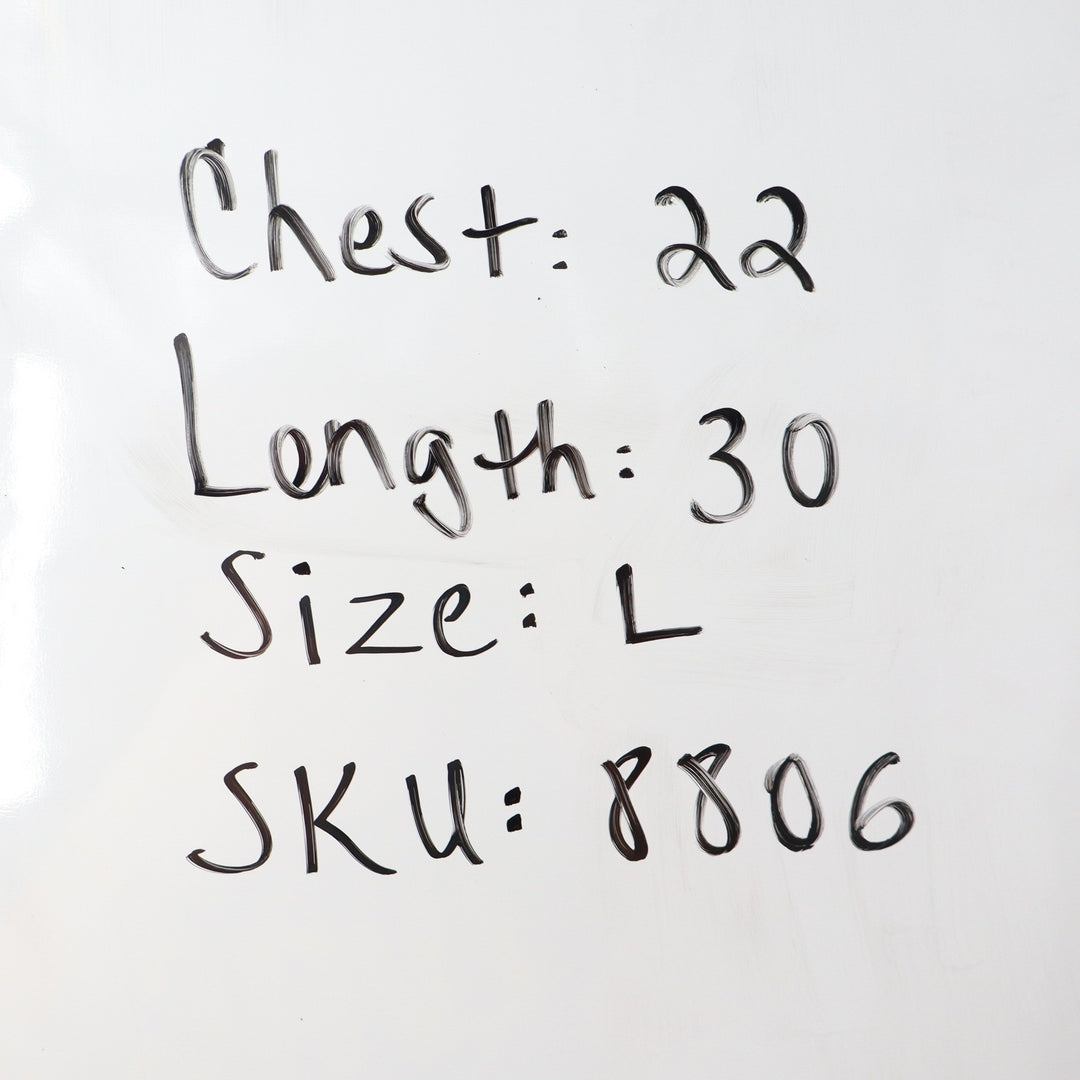 Chest: 22
Length: 30
Size: L
SKU: 8806